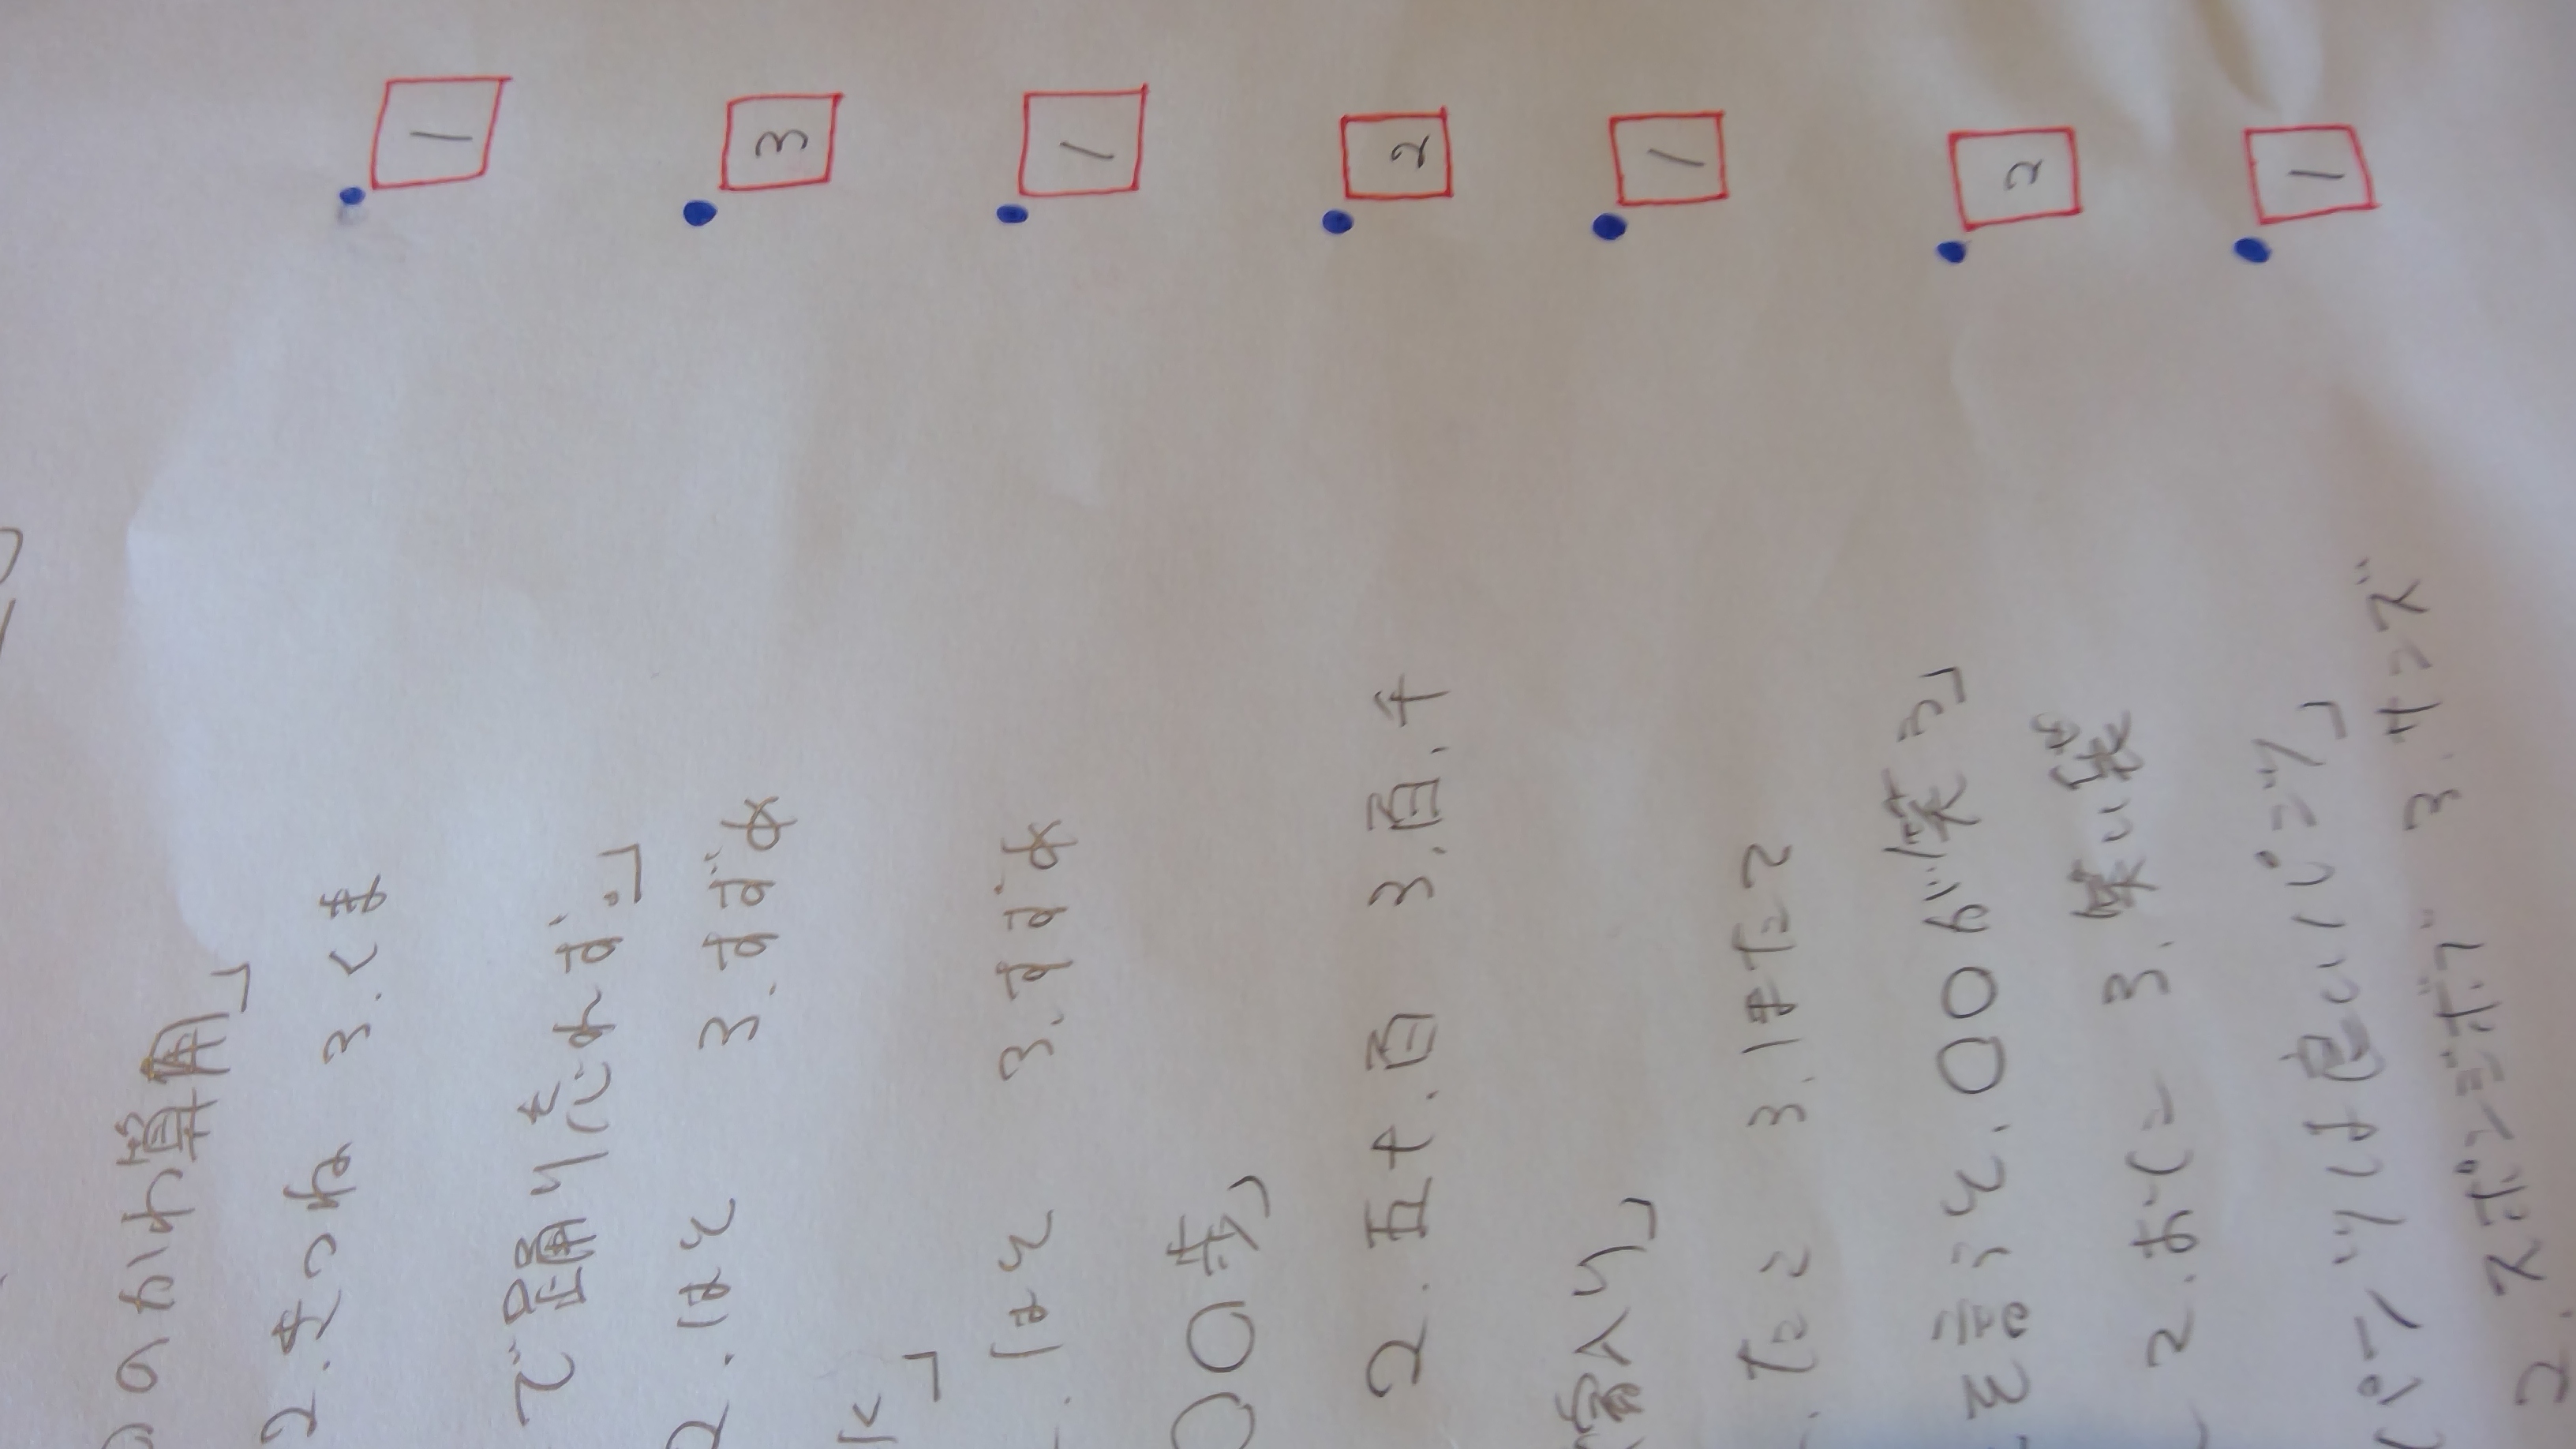 のかわ算用」
2.きつね 3.くま
1
で踊り忘れず。」
2.はと 3.すずめ
3
に」
はと 3.すずめ
1
〇〇歩」
2.五十、百 3.百、千
2
嫁入り」
たこ 3.ほたて
1
を言うと、〇〇が笑う」
2
2.おに 3.笑い袋
パンツは良いパンツ」
1
2.スポンジボブ 3.サンズ